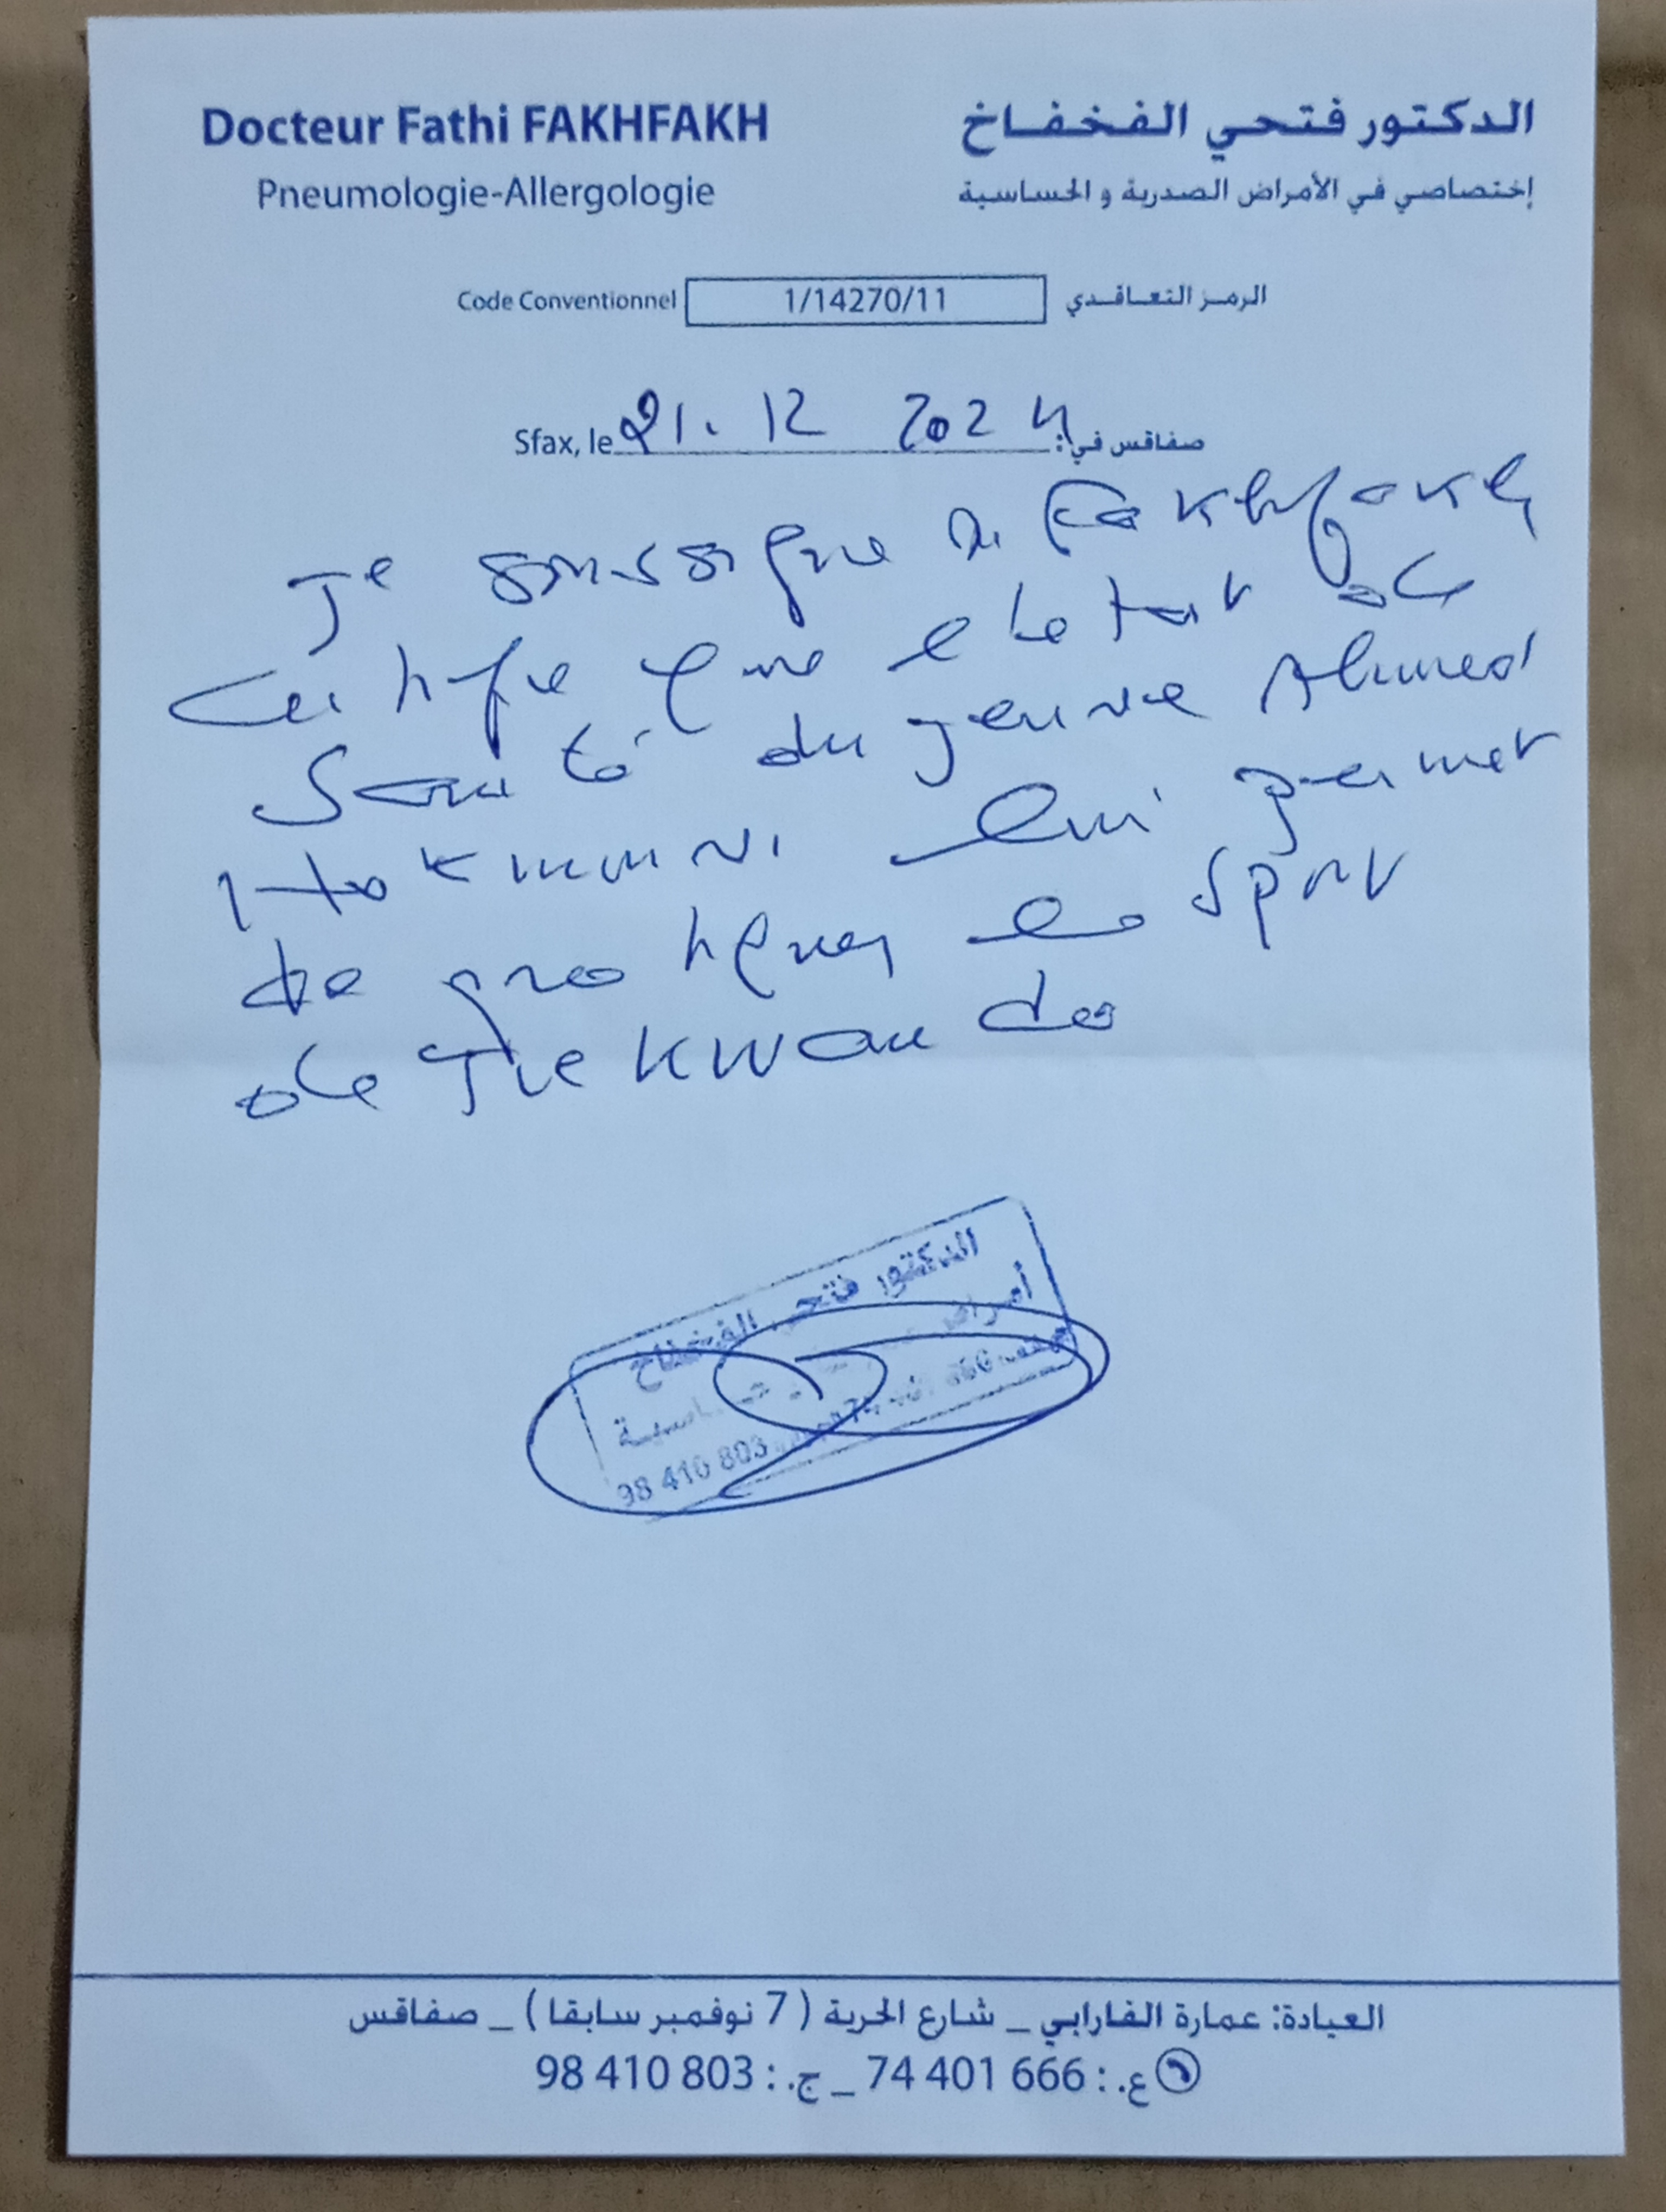 Docteur Fathi FAKHFAKH
الدكتور فتحي الفخفاخ
Pneumologie-Allergologie
إختصاصي في الأمراض الصدرية و الحساسية
Code Conventionnel 1/14270/11 الرمز التعاقدي
Sfax, le 21. 12 2024 صفاقس في:
Je soussigné Dr Fakhfakh
certifie que l'état de
Santé du jeune Ahmed
lui permet
de pratiquer le sport
de Taekwondo
الدكتور فتحي الفخفاخ
أمراض
98 410 803
العيادة: عمارة الفارابي _ شارع الحرية ( 7 نوفمبر سابقا ) _ صفاقس
ع. : 666 401 74 _ ج. : 803 410 98